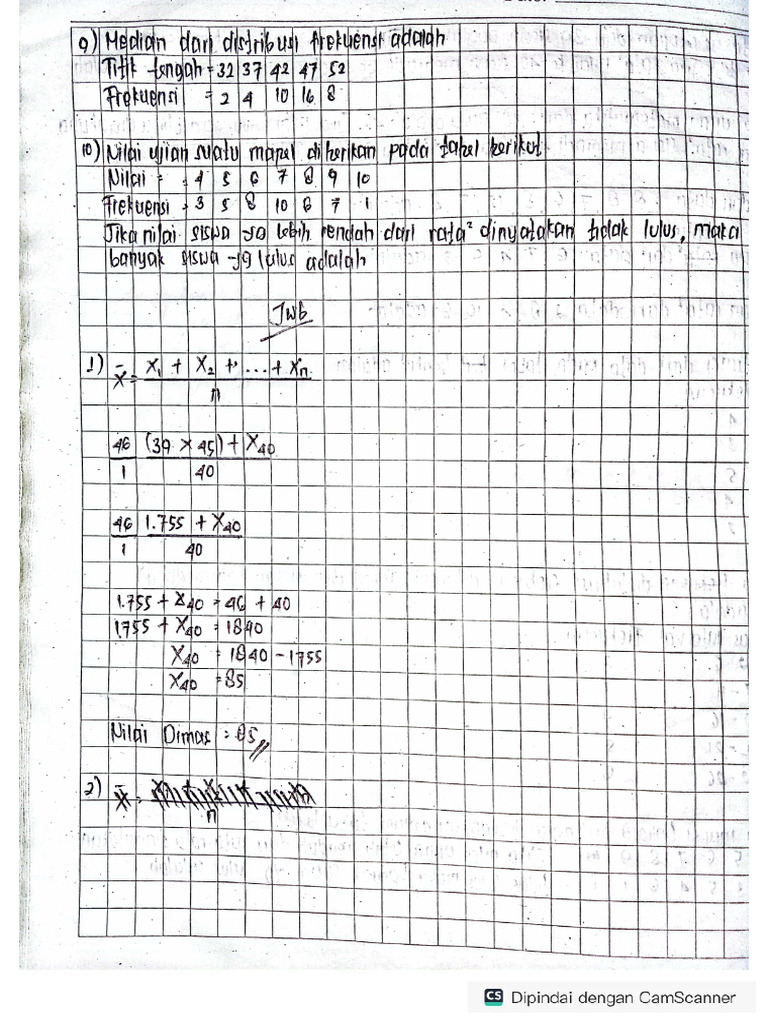 9) Median dari distribusi frekuensi adalah
Titik tengah = 32 37 42 47 52
Frekuensi = 2 4 10 16 8
10) Nilai ujian suatu mapel diberikan pada tabel berikut
Nilai = 4 5 6 7 8 9 10
Frekuensi = 3 5 8 10 6 7 1
Jika nilai siswa yg lebih rendah dari rata² dinyatakan tidak lulus, maka
banyak siswa yg lulus adalah
Jwb
1) x̄ = X₁ + X₂ + ... + Xn
n
46 (39 × 45) + X40
1 40
46 1.755 + X40
1 40
1.755 + X40 = 46 + 40
1.755 + X40 = 1840
X40 = 1840 - 1755
X40 = 85
Nilai Dimas = 85
2) x̄ =
n
CS Dipindai dengan CamScanner